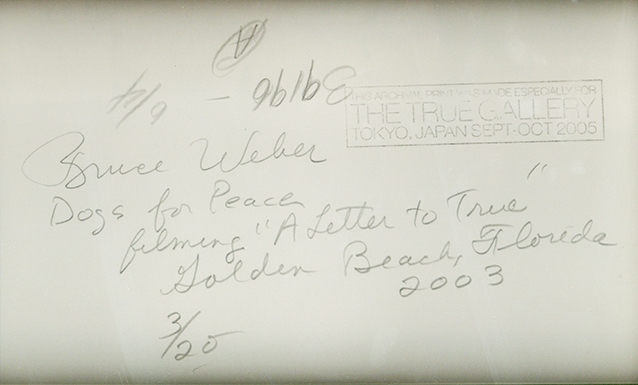 A
39196 - 6/4
THIS ARCHIVAL PRINT WAS MADE ESPECIALLY FOR
THE TRUE GALLERY
TOKYO, JAPAN SEPT-OCT 2005
Bruce Weber
Dogs for Peace
filming "A Letter to True"
Golden Beach, Florida
2003
3/20